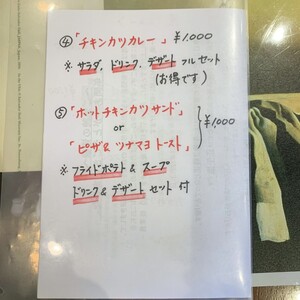 ④「チキンカツカレー」 ¥1,000
※ サラダ、ドリンク、デザート フルセット
(お得です)
⑤「ホットチキンカツサンド」
or
「ピザ&ツナマヨトースト」
¥1,000
※ フライドポテト & スープ
ドリンク & デザート セット 付